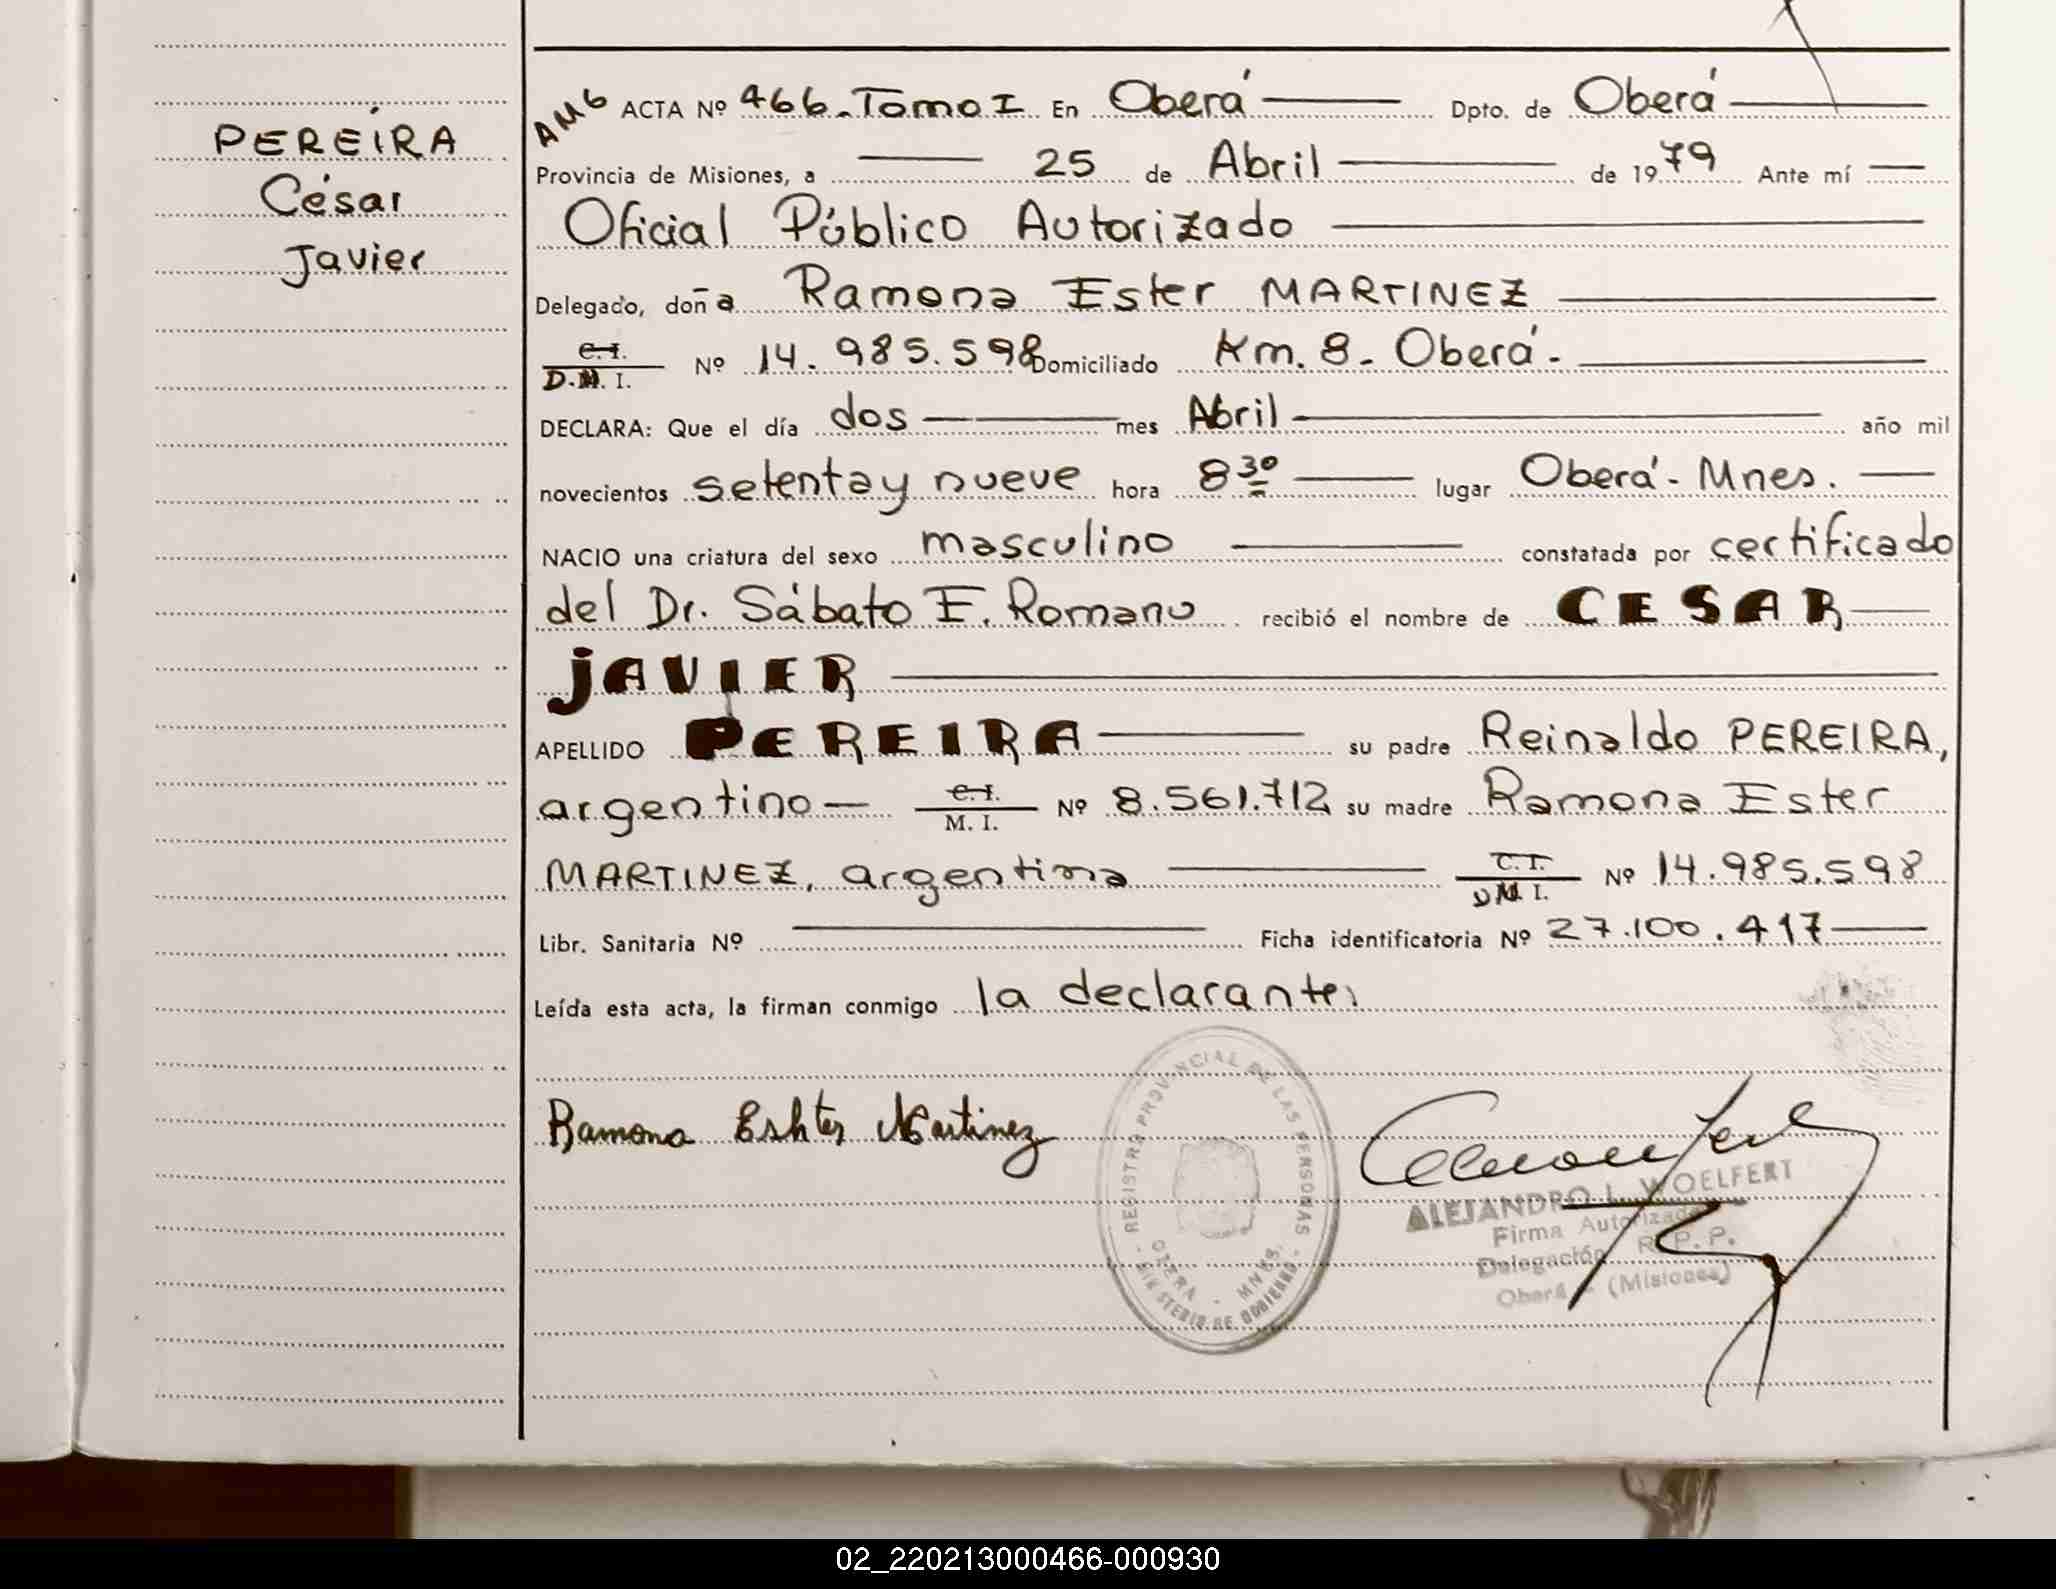 PEREIRA
César
Javier
AM6 ACTA Nº 466. Tomo I En Oberá Dpto. de Oberá
Provincia de Misiones, a 25 de Abril de 1979 Ante mí
Oficial Público Autorizado
Delegado, doña Ramona Ester MARTINEZ
C.I.
D.M.I. Nº 14.985.598 Domiciliado Km. 8 - Oberá -
DECLARA: Que el día dos mes Abril año mil
novecientos setenta y nueve hora 8 30 lugar Oberá - Mnes.
NACIO una criatura del sexo masculino constatada por certificado
del Dr. Sábato E. Romano recibió el nombre de CESAR
JAVIER
APELLIDO PEREIRA su padre Reinaldo PEREIRA,
argentino C.I. M.I. Nº 8.561.712 su madre Ramona Ester
MARTINEZ, argentina C.I. D.M.I. Nº 14.985.598
Libr. Sanitaria Nº Ficha identificatoria Nº 27.100.417
Leída esta acta, la firman conmigo la declarante.
Ramona Eshter Martinez
REGISTRO PROVINCIAL DE LAS PERSONAS
OBERA - MNES.
MINISTERIO DE GOBIERNO
ALEJANDRO L. WOELFERT
Firma Autorizada
Delegación R. P. P.
Oberá - (Misiones)
02_220213000466-000930